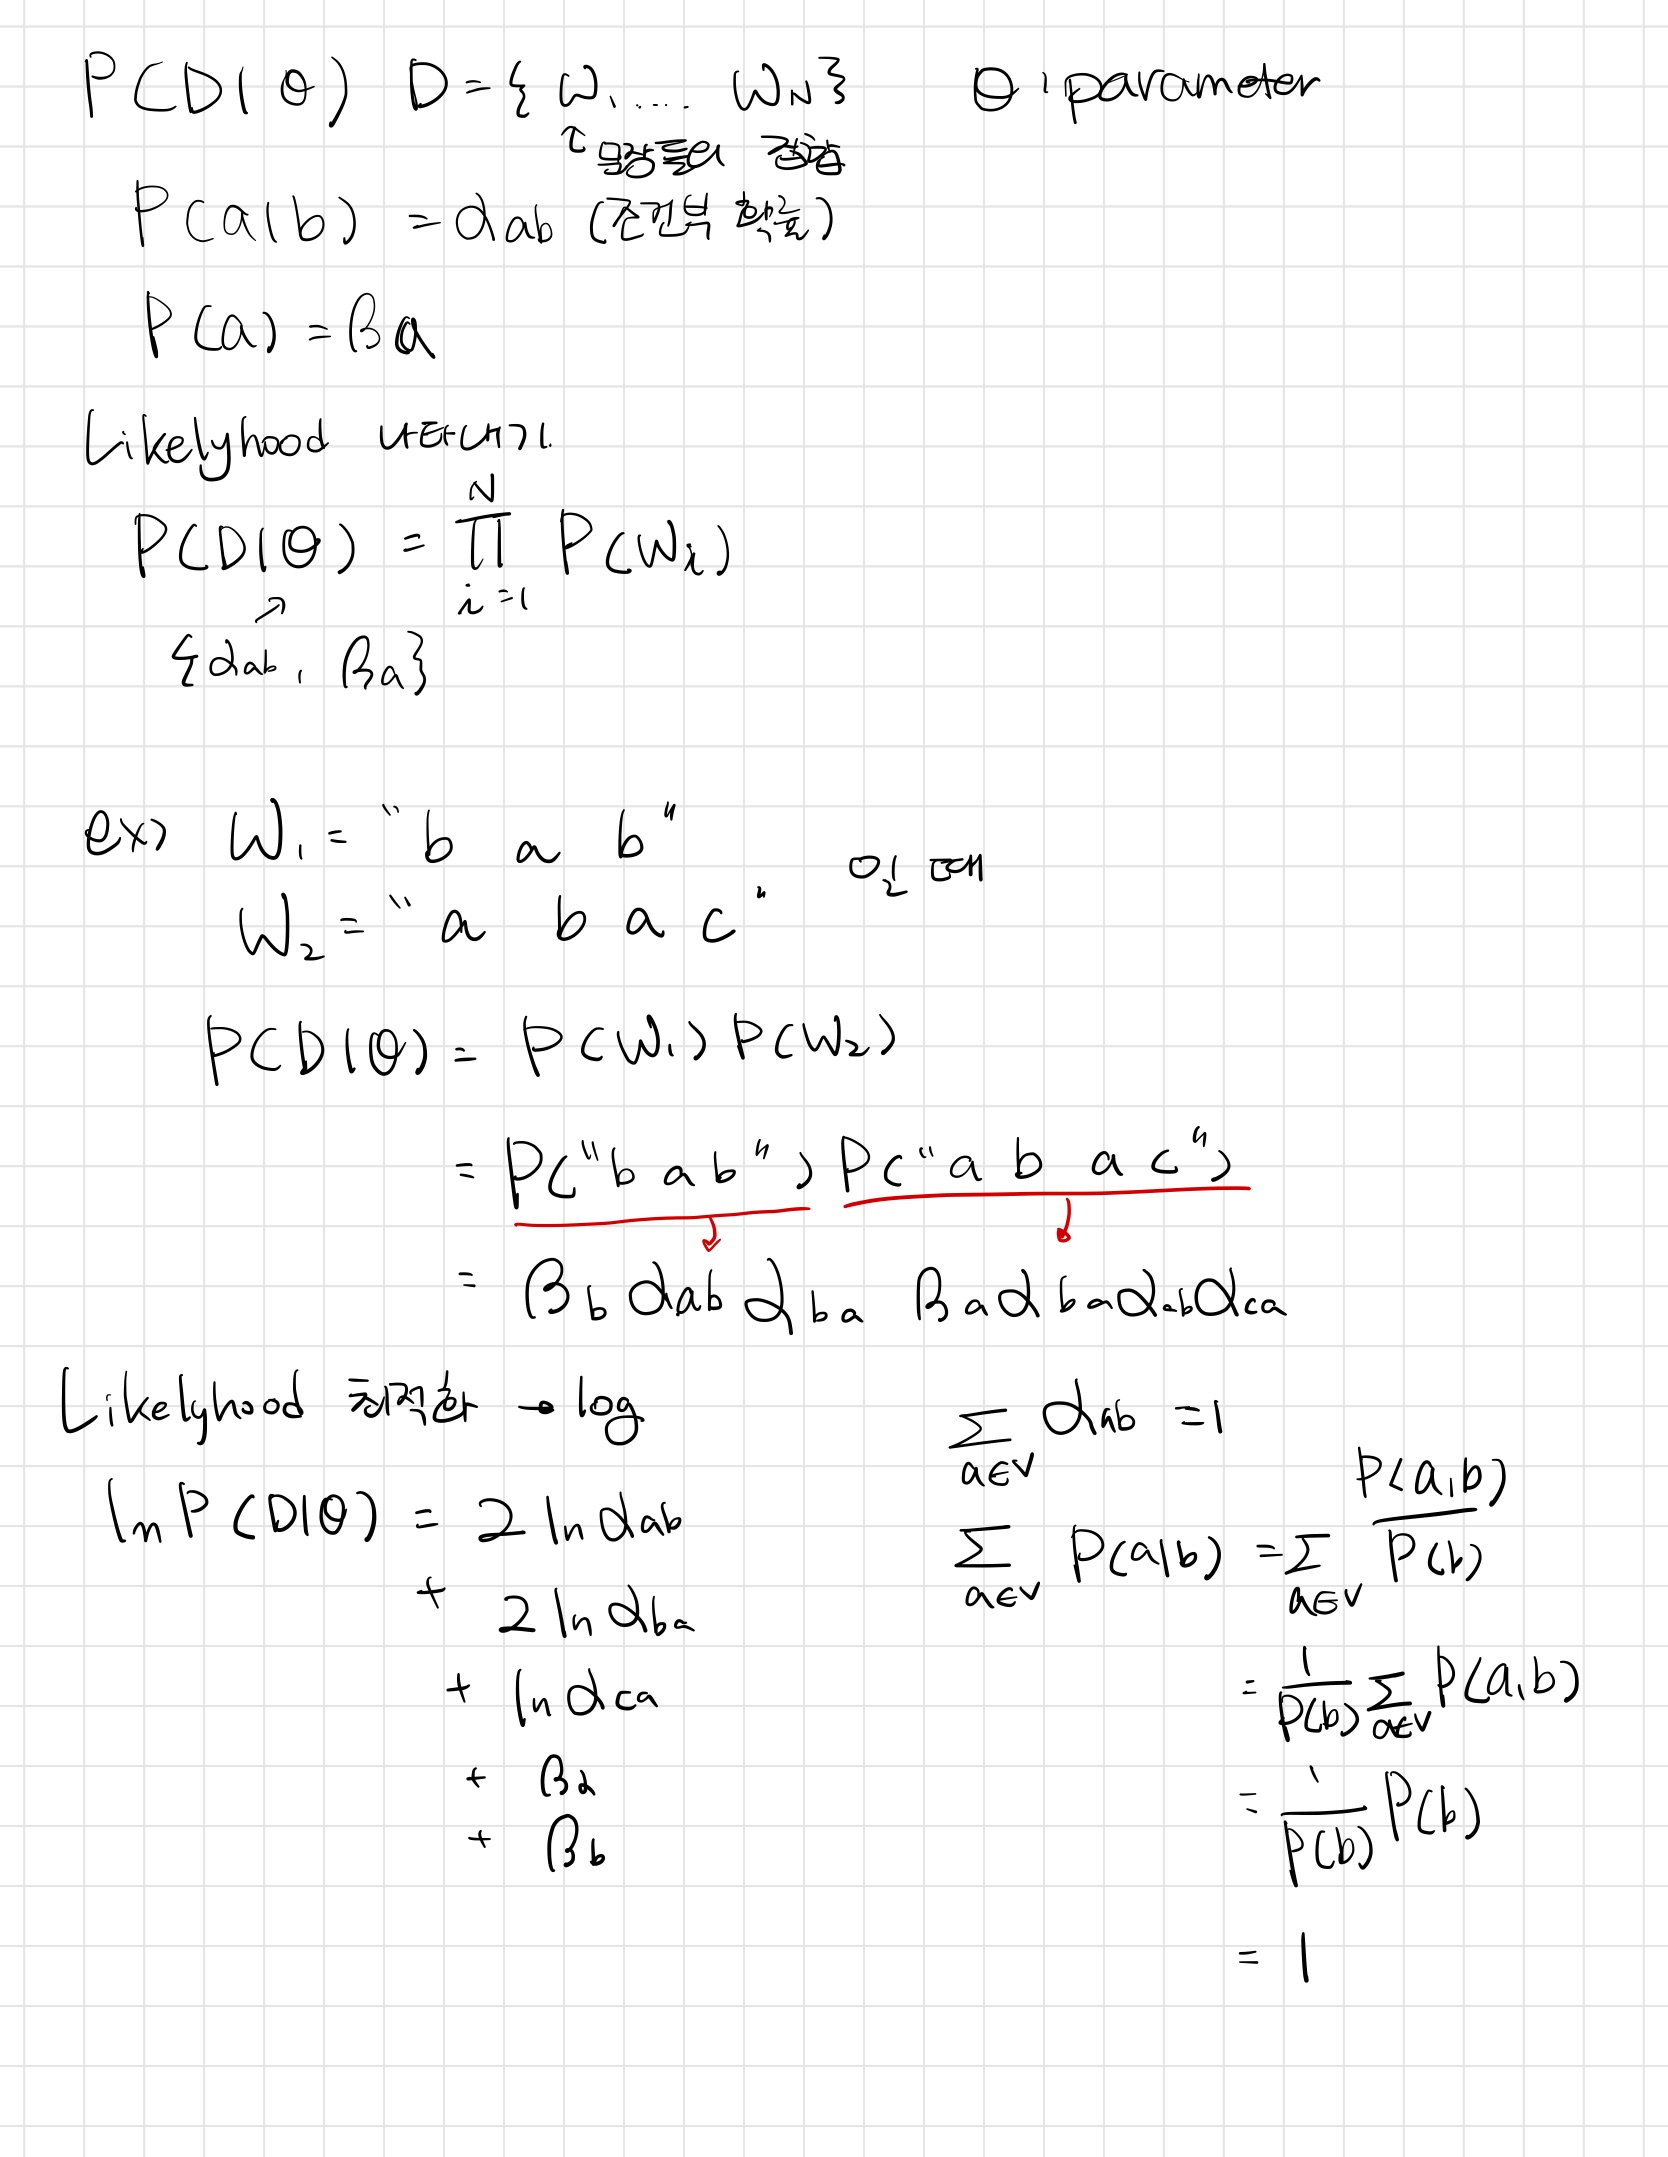 P(D|θ) D={W₁ ..... W_N} θ : parameter
↑ 문장들의 집합
P(a|b) = α_ab (조건부 확률)
P(a) = β_a
Likelyhood 나타내기.
P(D|θ) = ∏_{i=1}^{N} P(W_i)
↗
{α_ab, β_a}
ex) W₁ = "b a b"
일 때
W₂ = "a b a c"
P(D|θ) = P(W₁) P(W₂)
= P("b a b") P("a b a c")
= β_b α_ab α_ba β_a α_ba α_ab α_ca
Likelyhood 최적화 → log
ln P(D|θ) = 2 ln α_ab
+ 2 ln α_ba
+ ln α_ca
+ β_a
+ β_b
∑_{a∈V} α_ab = 1
∑_{a∈V} P(a|b) = ∑_{a∈V} P(a,b) / P(b)
= 1/P(b) ∑_{a∈V} P(a,b)
= 1/P(b) P(b)
= 1